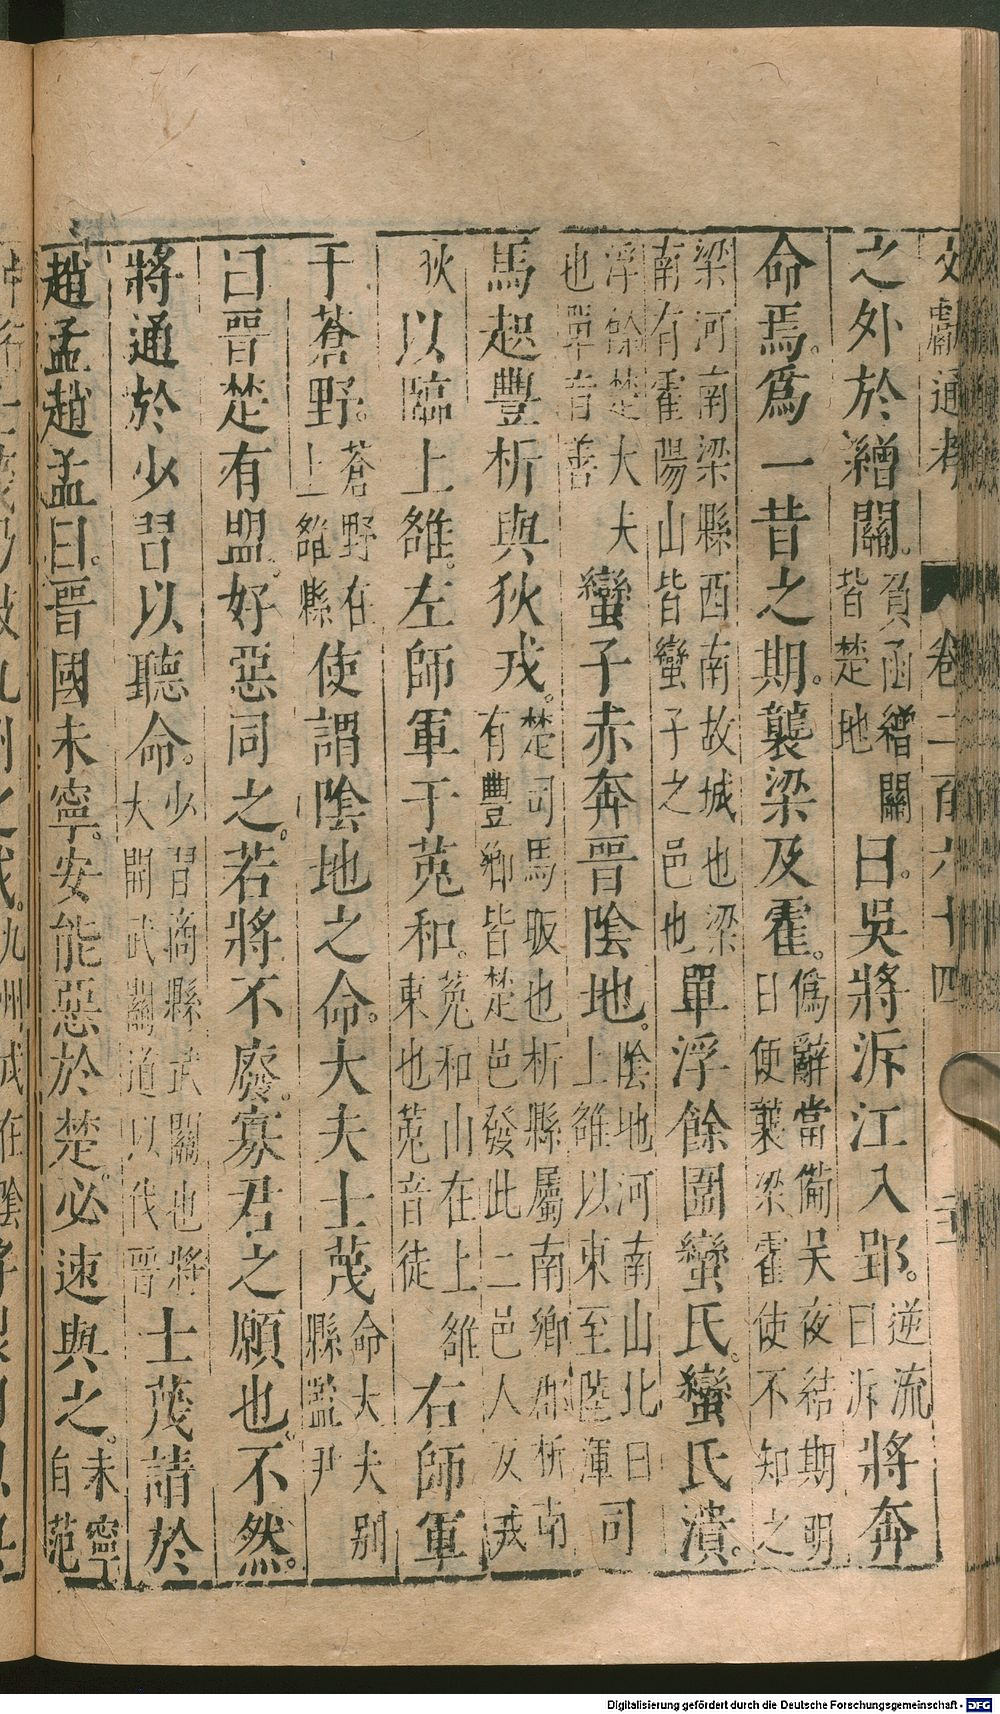 文獻通考 卷二百六十四
之外於繒關。負函繒關皆楚地曰。吳將泝江入郢。逆流曰泝將奔
命焉。爲一昔之期。襲梁及霍。僞辭當備吳夜結期明日便襲梁霍使不知之
梁河南梁縣西南故城也梁南有霍陽山皆蠻子之邑也單浮餘圍蠻氏。蠻氏潰。
浮餘楚大夫也單音善蠻子赤奔晉陰地。陰地河南山北曰上雒以東至陸渾司
馬起豐析與狄戎。楚司馬眅也析縣屬南鄉郡析南有豐鄉皆楚邑發此二邑人及戎
狄以臨上雒。左師軍于菟和。菟和山在上雒東也菟音徒右師軍
于蒼野。蒼野在上雒縣使謂陰地之命。大夫士蔑命大夫別縣監尹
曰晉楚有盟。好惡同之。若將不廢。寡君之願也。不然。
將通於少習以聽命。少習商縣武關也將大開武關道以伐晉士蔑請於
趙孟趙孟曰。晉國未寧。安能惡於楚。必速與之。未寧自范
Digitalisierung gefördert durch die Deutsche Forschungsgemeinschaft - DFG